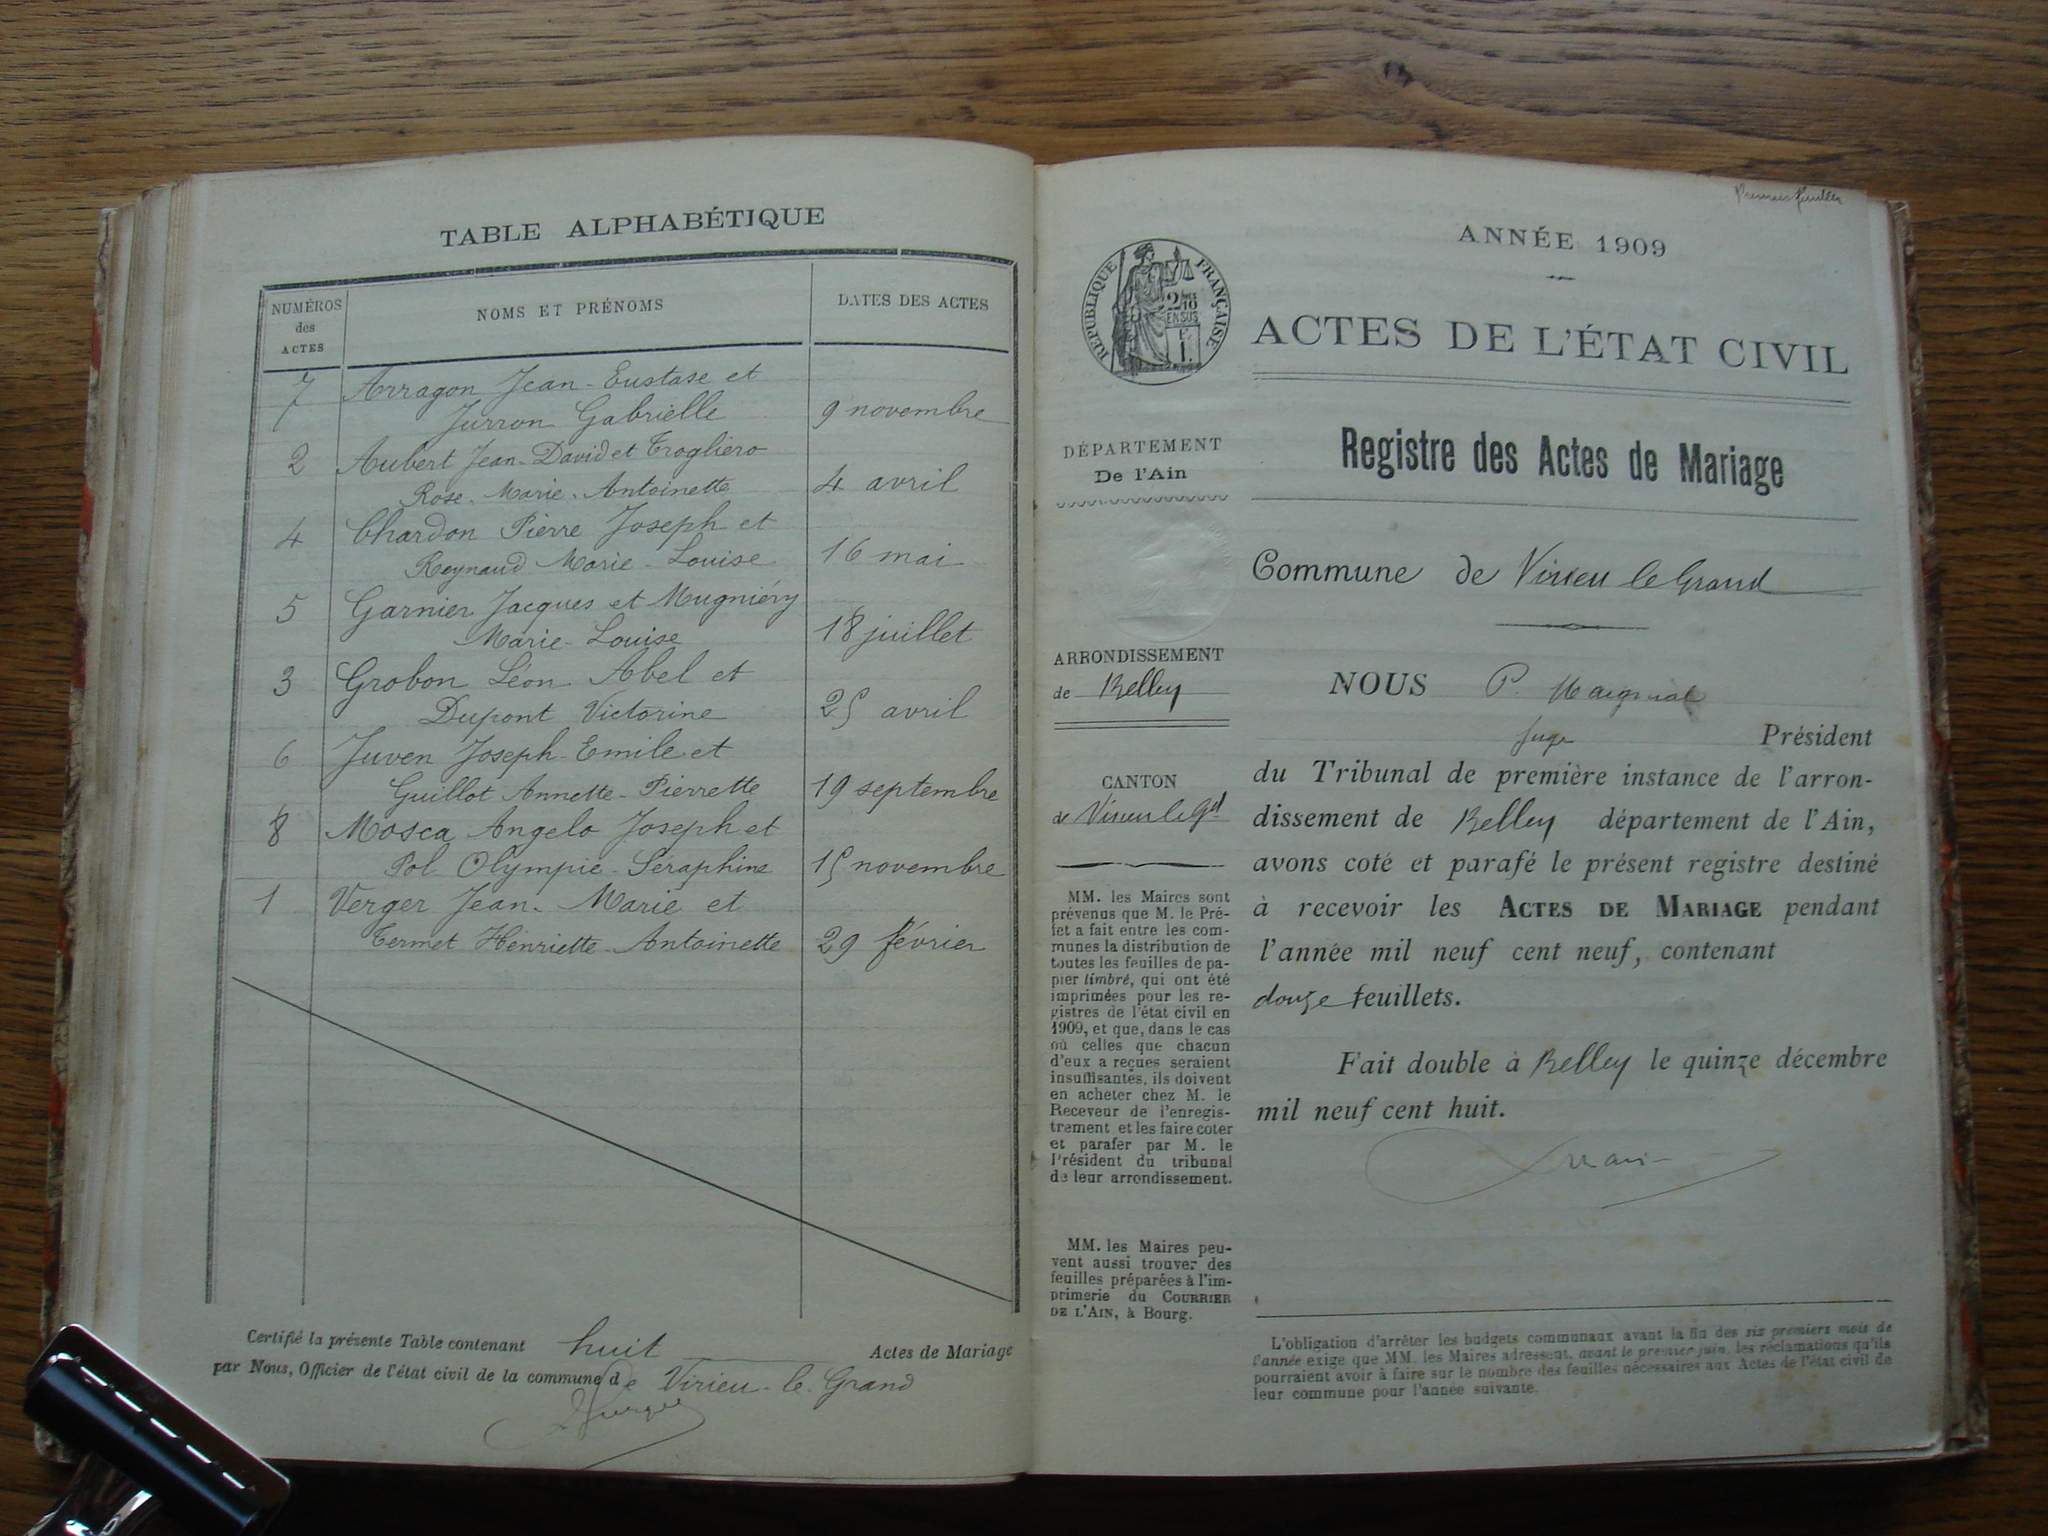 TABLE ALPHABÉTIQUE
NUMÉROS
des
ACTES
NOMS ET PRÉNOMS
DATES DES ACTES
7 Arragon Jean-Eustase et
Jurron Gabrielle 9 novembre
2 Aubert Jean-David et Trogliero
Rose-Marie-Antoinette 4 avril
4 Chardon Pierre Joseph et
Reynaud Marie-Louise 16 mai
5 Garnier Jacques et Mugniéry
Marie-Louise 18 juillet
3 Grobon Léon Abel et
Dupont Victorine 25 avril
6 Juven Joseph-Emile et
Guillot Annette-Pierrette 19 septembre
8 Mosca Angelo Joseph et
Pol Olympie-Séraphine 15 novembre
1 Verger Jean-Marie et
Termet Henriette-Antoinette 29 février
Certifié la présente Table contenant huit Actes de Mariage
par Nous, Officier de l'état civil de la commune de Virieu-le-Grand
ANNÉE 1909
RÉPUBLIQUE FRANÇAISE
2/10
EN SUS
ACTES DE L'ÉTAT CIVIL
Registre des Actes de Mariage
DÉPARTEMENT
De l'Ain
Commune de Virieu le Grand
ARRONDISSEMENT
de Belley
CANTON
de Virieu le Gd
MM. les Maires sont
prévenus que M. le Pré-
fet a fait entre les com-
munes la distribution de
toutes les feuilles de pa-
pier timbré, qui ont été
imprimées pour les re-
gistres de l'état civil en
1909, et que, dans le cas
où celles que chacun
d'eux a reçues seraient
insuffisantes, ils doivent
en acheter chez M. le
Receveur de l'enregis-
trement et les faire coter
et parafer par M. le
Président du tribunal
de leur arrondissement.
MM. les Maires peu-
vent aussi trouver des
feuilles préparées à l'im-
primerie du COURRIER
DE L'AIN, à Bourg.
NOUS P.
juge Président
du Tribunal de première instance de l'arron-
dissement de Belley département de l'Ain,
avons coté et parafé le présent registre destiné
à recevoir les ACTES DE MARIAGE pendant
l'année mil neuf cent neuf, contenant
douze feuillets.
Fait double à Belley le quinze décembre
mil neuf cent huit.
L'obligation d'arrêter les budgets communaux avant la fin des six premiers mois de
l'année exige que MM. les Maires adressent, avant le premier juin, les réclamations qu'ils
pourraient avoir à faire sur le nombre des feuilles nécessaires aux Actes de l'état civil de
leur commune pour l'année suivante.